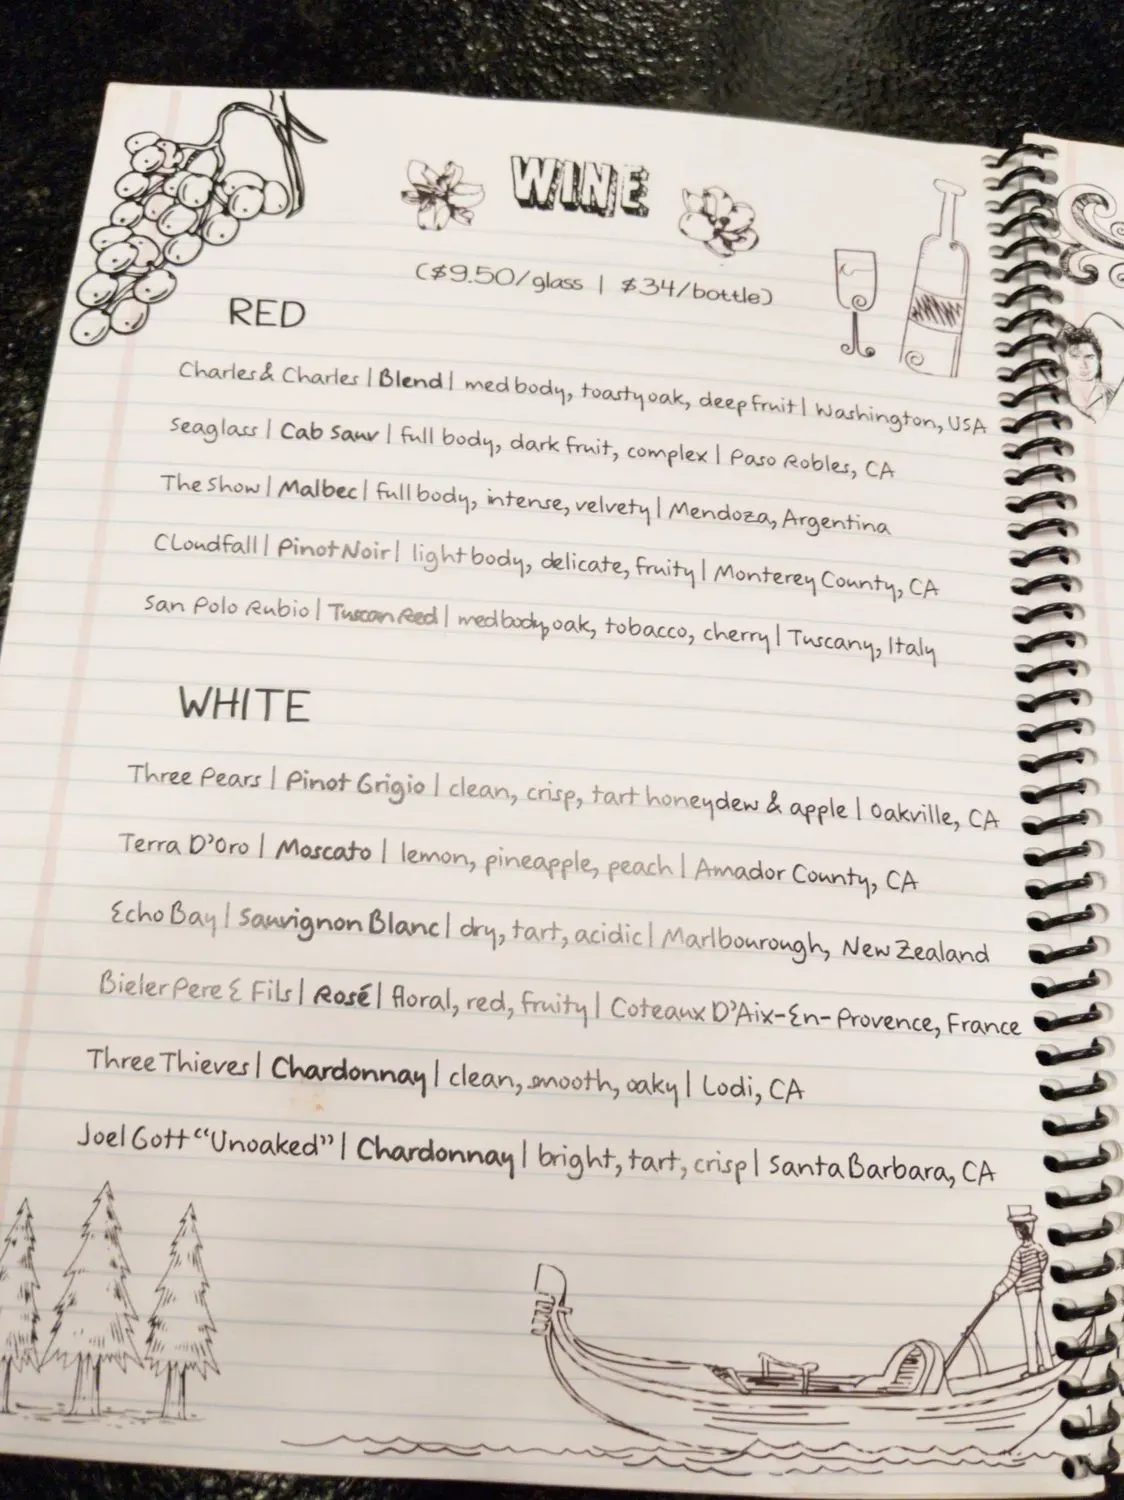 WINE
($9.50/glass | $34/bottle)
RED
Charles & Charles | Blend | med body, toasty oak, deep fruit | Washington, USA
Seaglass | Cab Sauv | full body, dark fruit, complex | Paso Robles, CA
The Show | Malbec | full body, intense, velvety | Mendoza, Argentina
Cloudfall | Pinot Noir | light body, delicate, fruity | Monterey County, CA
San Polo Rubio | Tuscan Red | med body, oak, tobacco, cherry | Tuscany, Italy
WHITE
Three Pears | Pinot Grigio | clean, crisp, tart honeydew & apple | Oakville, CA
Terra D'Oro | Moscato | lemon, pineapple, peach | Amador County, CA
Echo Bay | Sauvignon Blanc | dry, tart, acidic | Marlbourough, New Zealand
Bieler Pere & Fils | Rosé | floral, red, fruity | Coteaux D'Aix-En-Provence, France
Three Thieves | Chardonnay | clean, smooth, oaky | Lodi, CA
Joel Gott "Unoaked" | Chardonnay | bright, tart, crisp | Santa Barbara, CA